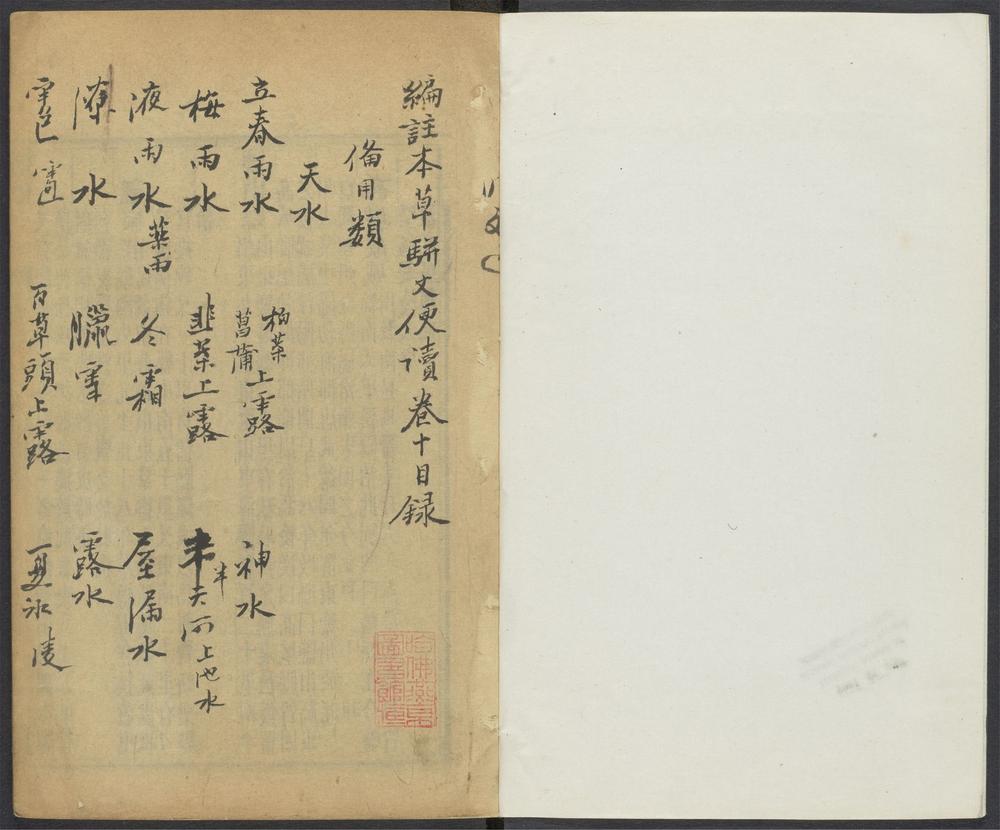 編註本草駢文便讀卷十目録
備用類
天水
立春雨水 柏葉菖蒲上露 神水
梅雨水 韭葉上露 半天河上池水
液雨水 藥雨 冬霜 屋漏水
潦水 臘雪 露水
雹 百草頭上露 夏冰凌